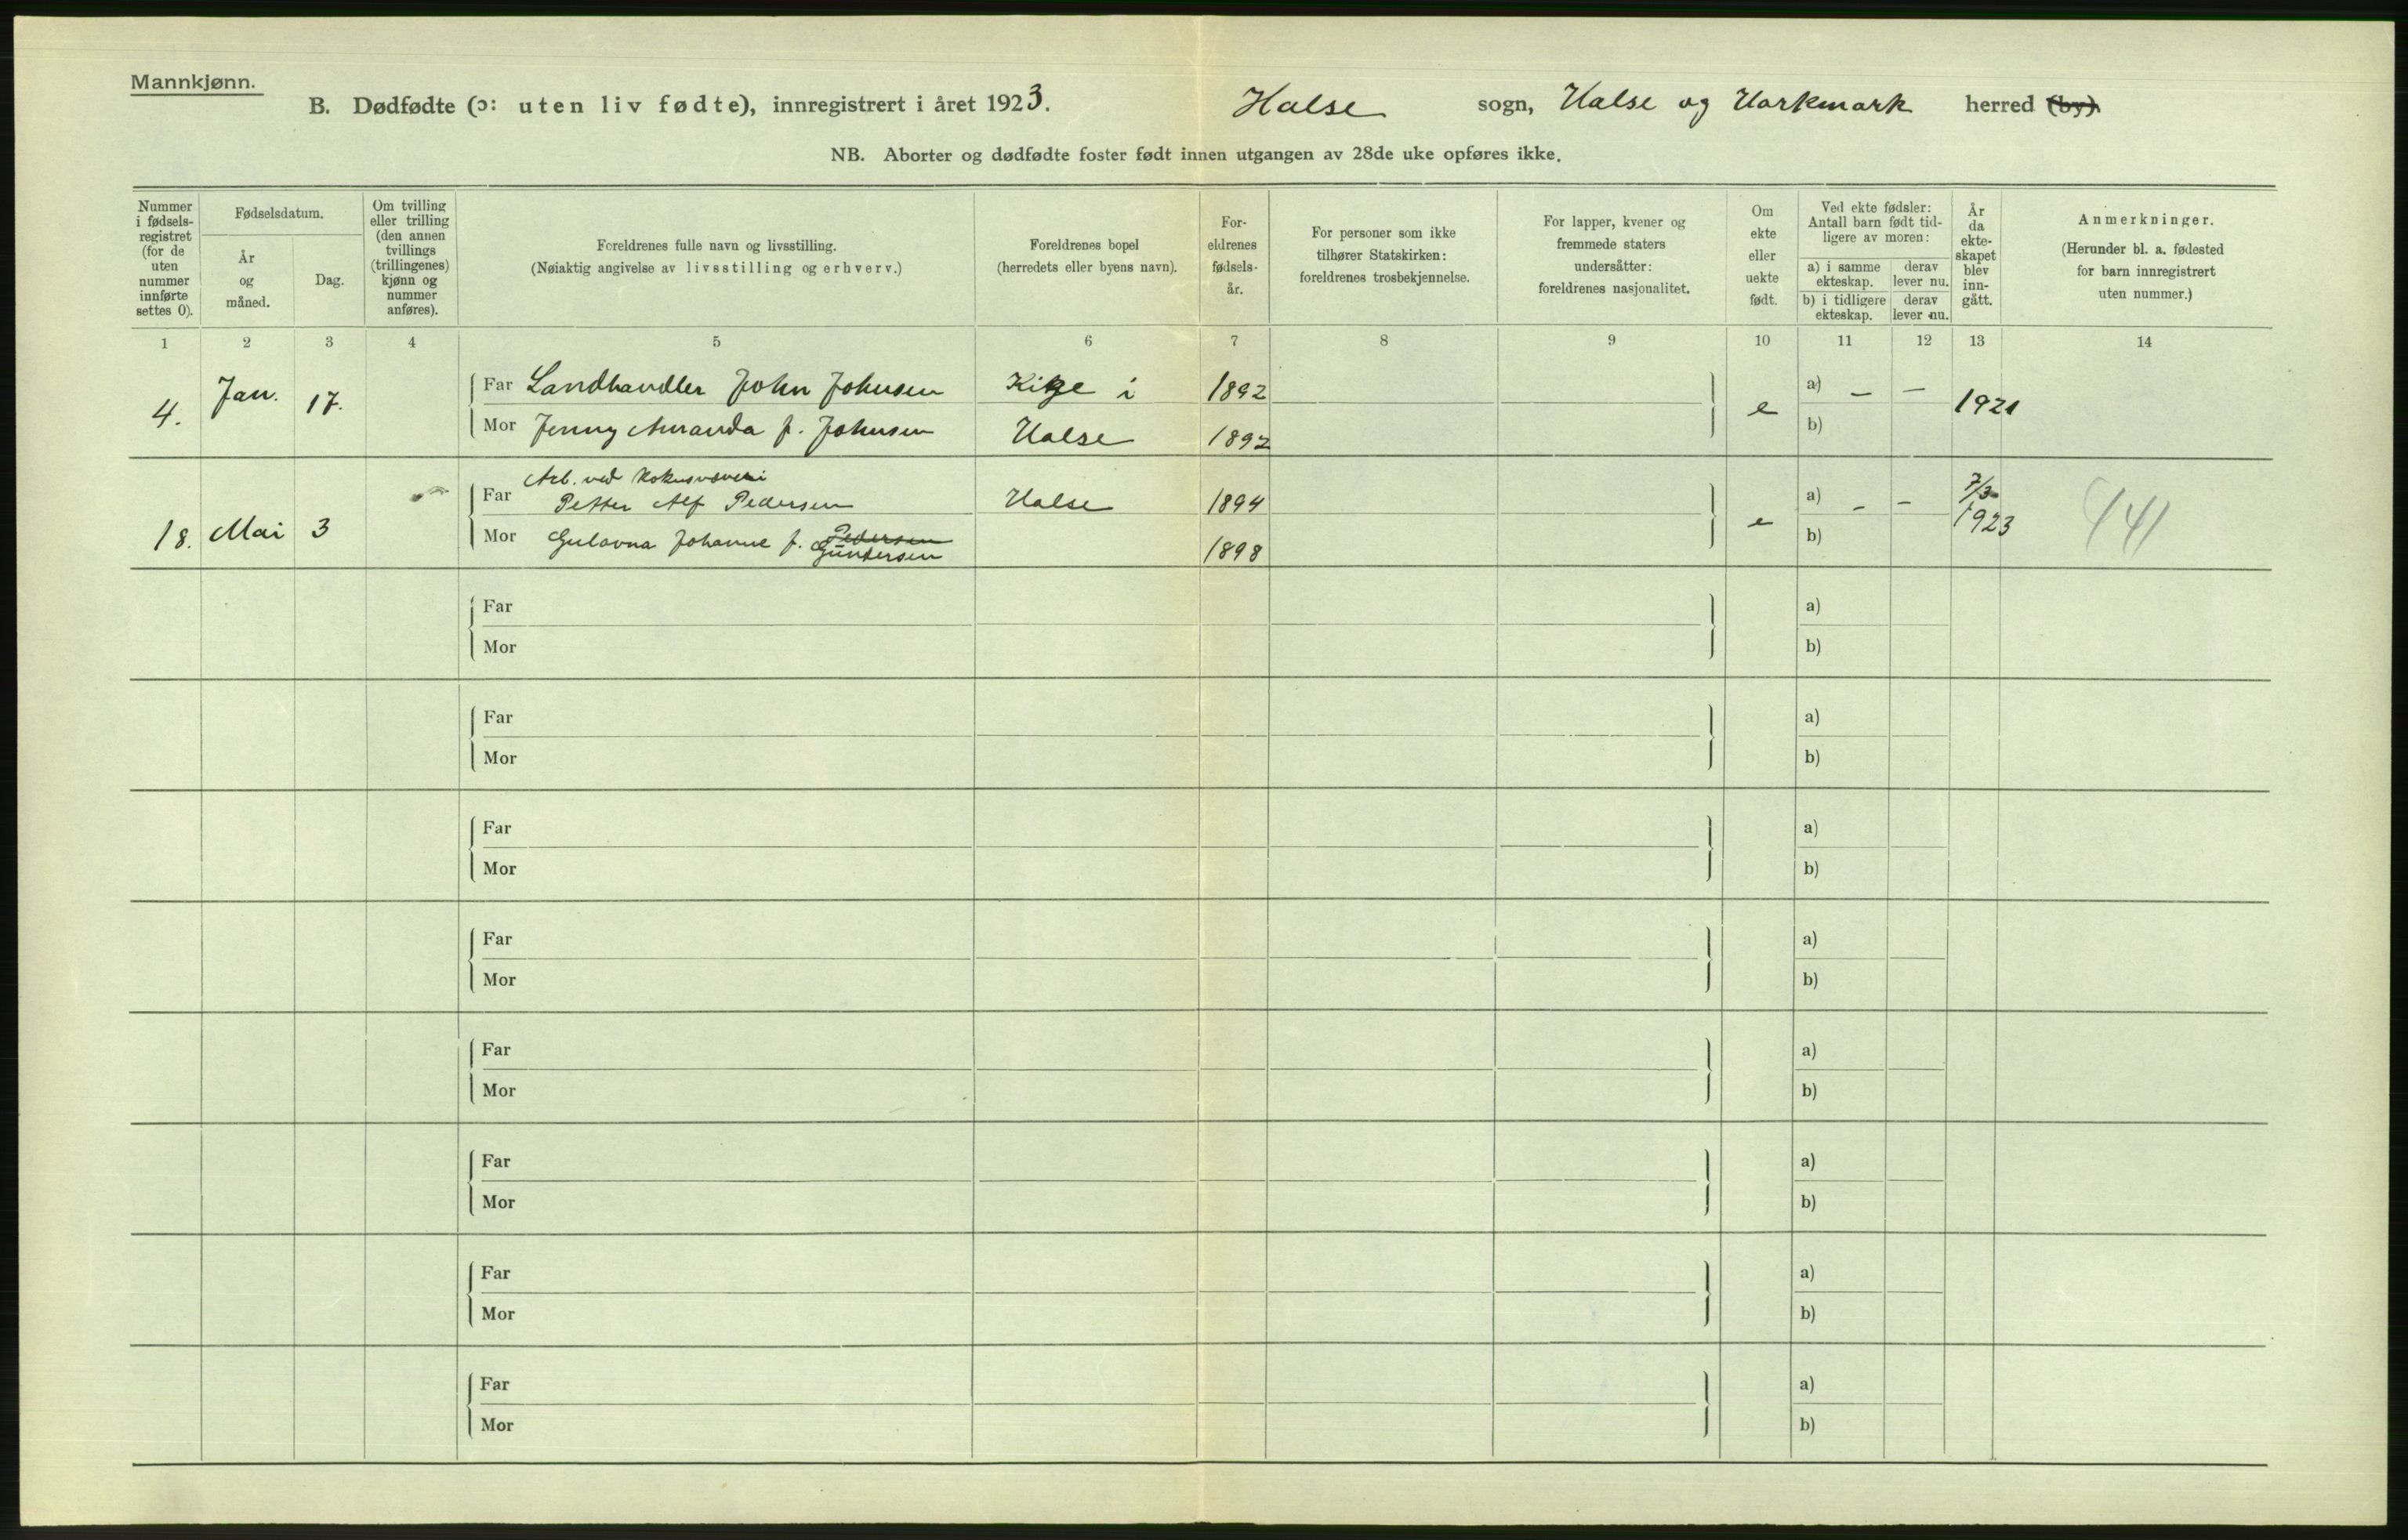 Mannkjønn.
B. Dødfødte (ɔ: uten liv fødte), innregistrert i året 1923. Halse sogn, Halse og Harkmark herred (by).
NB. Aborter og dødfødte foster født innen utgangen av 28de uke opføres ikke.
Nummer i fødsels-registret (for de uten nummer innførte settes 0).
Fødselsdatum.
År og måned.
Dag.
Om tvilling eller trilling (den annen tvillings (trillingenes) kjønn og nummer anføres).
Foreldrenes fulle navn og livsstilling.
(Nøiaktig angivelse av livsstilling og erhverv.)
Foreldrenes bopel
(herredets eller byens navn).
For-eldrenes fødsels-år.
For personer som ikke tilhører Statskirken: foreldrenes trosbekjennelse.
For lapper, kvener og fremmede staters undersåtter: foreldrenes nasjonalitet.
Om ekte eller uekte født.
Ved ekte fødsler: Antall barn født tid-ligere av moren:
a) i samme ekteskap. derav lever nu.
b) i tidligere ekteskap. derav lever nu.
År da ekte-skapet blev inn-gått.
Anmerkninger.
(Herunder bl. a. fødested for barn innregistrert uten nummer.)
1 2 3 4 5 6 7 8 9 10 11 12 13 14
4. Jan. 17. Far Landhandler John Johnsen Kige i 1892 e a) – – 1921
Mor Jenny Amanda f. Johnsen Halse 1892 b)
Arb. ved
18. Mai 3 Far Petter Alf Pedersen Halse 1894 e a) – – 7/3 1923 141
Mor Gulovna Johanne f. Pedersen 1898 b)
Gundersen
Far a)
Mor b)
Far a)
Mor b)
Far a)
Mor b)
Far a)
Mor b)
Far a)
Mor b)
Far a)
Mor b)
Far a)
Mor b)
Far a)
Mor b)